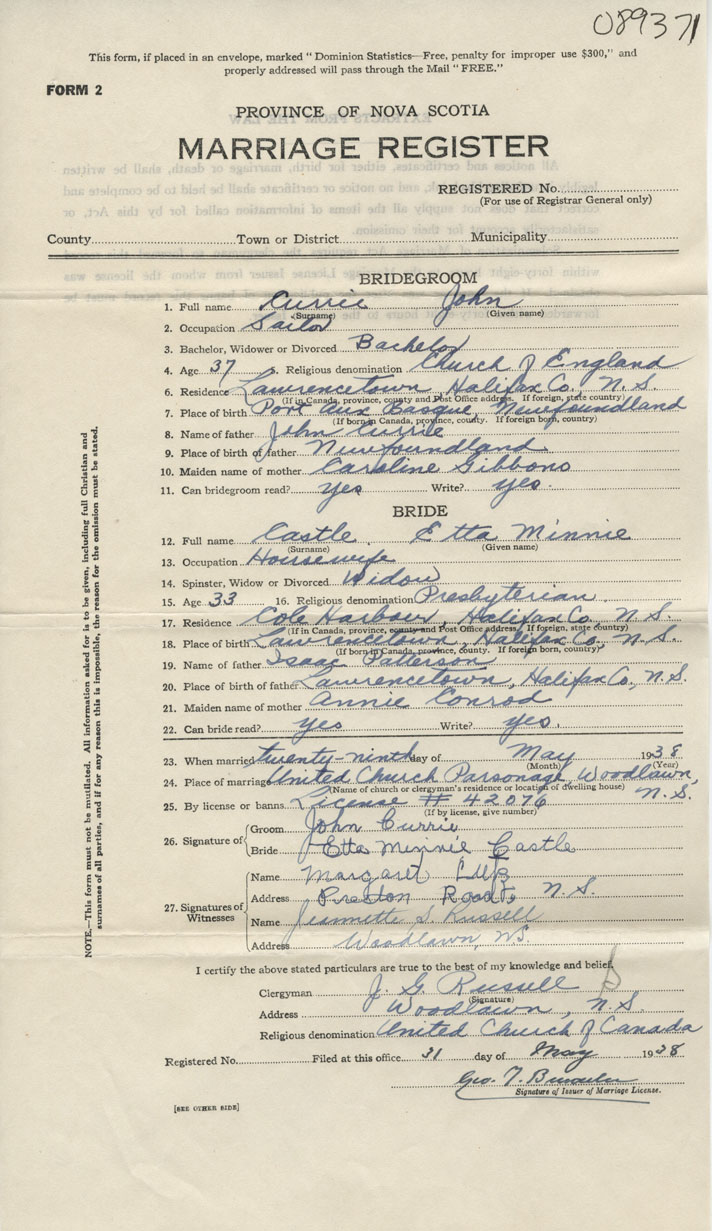 089371
This form, if placed in an envelope, marked "Dominion Statistics—Free, penalty for improper use $300," and
properly addressed will pass through the Mail "FREE."
FORM 2
PROVINCE OF NOVA SCOTIA
MARRIAGE REGISTER
REGISTERED No.
(For use of Registrar General only)
County Town or District Municipality
BRIDEGROOM
1. Full name Currie John
(Surname) (Given name)
2. Occupation Sailor
3. Bachelor, Widower or Divorced Bachelor
4. Age 37 5. Religious denomination Church of England
6. Residence Lawrencetown, Halifax Co. N.S.
(If in Canada, province, county and Post Office address. If foreign, state country)
7. Place of birth Port aux Basque, Newfoundland
(If born in Canada, province, county. If foreign born, country)
8. Name of father John Currie
9. Place of birth of father Newfoundland
10. Maiden name of mother Caroline Gibbons
11. Can bridegroom read? yes Write? yes.
BRIDE
12. Full name Castle, Etta Minnie
(Surname) (Given name)
13. Occupation Housewife
14. Spinster, Widow or Divorced Widow
15. Age 33 16. Religious denomination Presbyterian
17. Residence Cole Harbour, Halifax Co. N.S.
(If in Canada, province, county and Post Office address. If foreign, state country)
18. Place of birth Lawrencetown, Halifax Co, N.S.
(If born in Canada, province, county. If foreign born, country)
19. Name of father Isaac Patterson
20. Place of birth of father Lawrencetown, Halifax Co., N.S.
21. Maiden name of mother Annie Conrod
22. Can bride read? yes Write? yes.
23. When married twenty-ninth day of May 1938
(Month) (Year)
24. Place of marriage United Church Parsonage, Woodlawn,
(Name of church or clergyman's residence or location of dwelling house)
N.S.
25. By license or banns License # 42076
(If by license, give number)
26. Signature of
Groom John Currie
Bride Etta Minnie Castle
27. Signatures of Witnesses
Name Margaret
Address Preston Road, N.S.
Name Jeannette S. Russell
Address Woodlawn, N.S.
I certify the above stated particulars are true to the best of my knowledge and belief.
Clergyman J. G. Russell
(Signature)
Address Woodlawn, N.S.
Religious denomination United Church of Canada
Registered No. Filed at this office 31 day of May 1938
Geo. T.
Signature of Issuer of Marriage License.
[SEE OTHER SIDE]
NOTE.—This form must not be mutilated. All information asked for is to be given, including full Christian and
surnames of all parties, and if for any reason this is impossible, the reason for the omission must be stated.